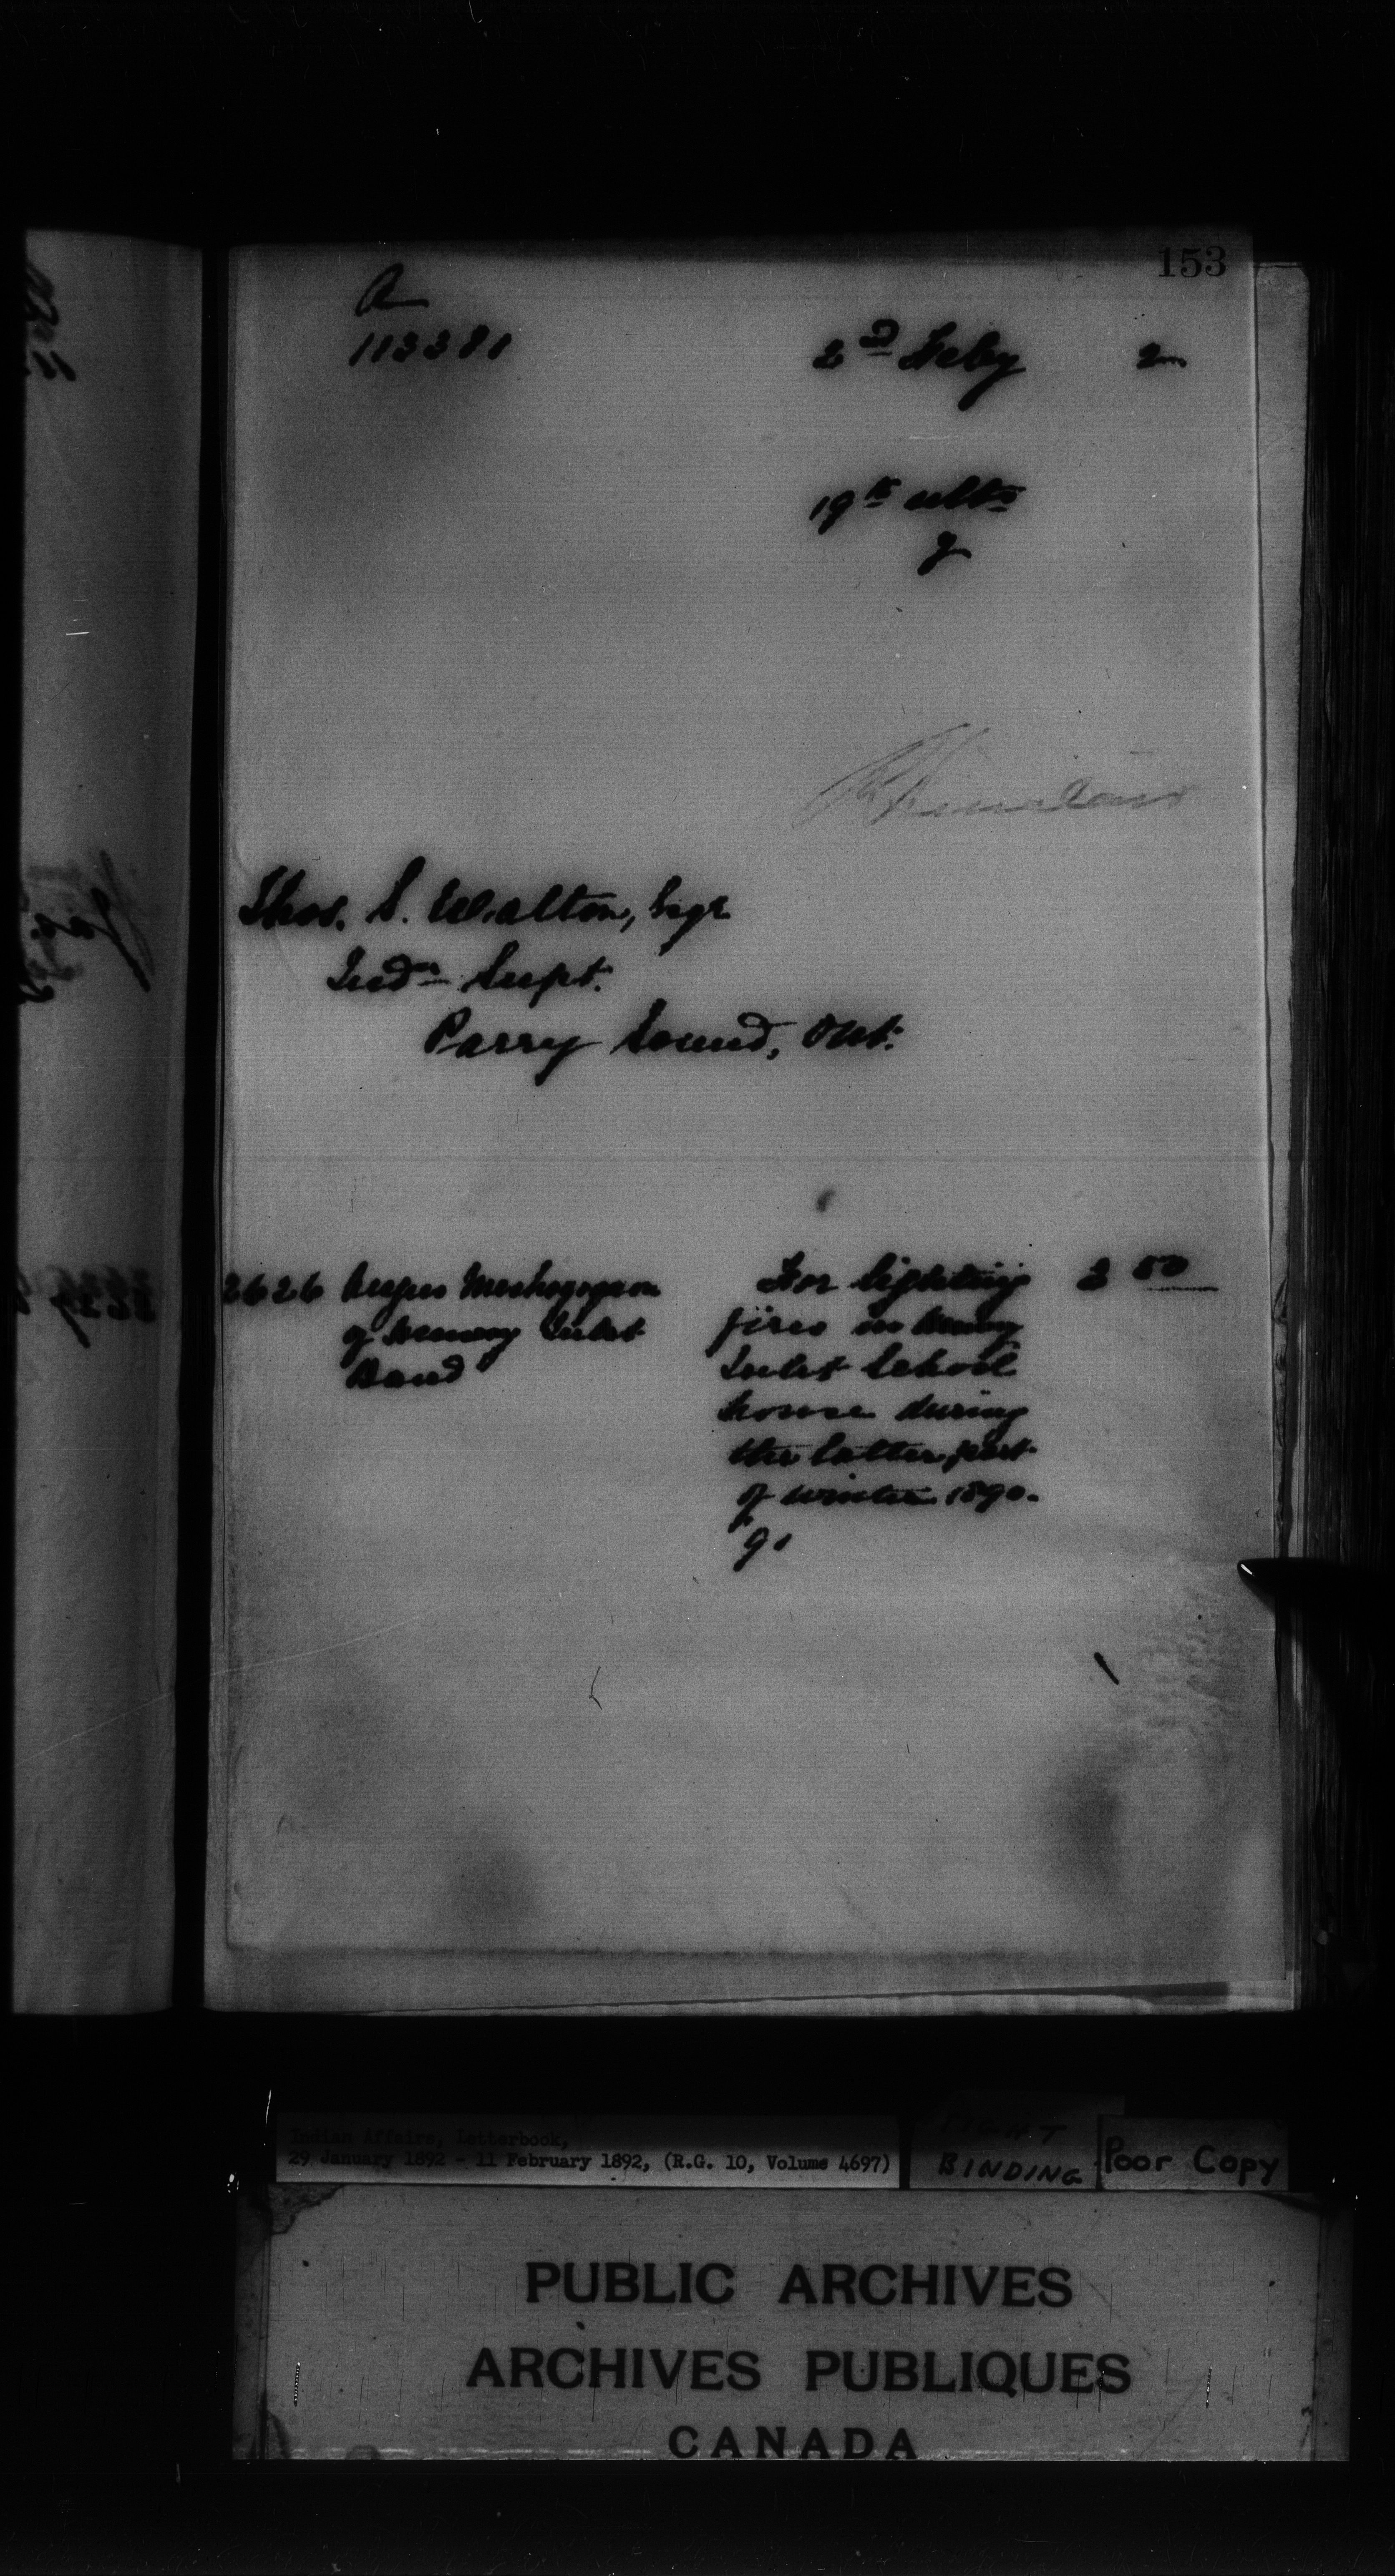 153
A
113381
2D Feby 2
19th ulto
g
R Sinclair
Thos. S. Walton, Esqr
Indn Supt.
Parry Sound, Ont.
2626
of Henvey Inlet
Band
For lighting 3 50
fires in Henvey
Inlet School
house during
the latter part
of winter 1890-
91
Indian Affairs, Letterbook,
29 January 1892 - 11 February 1892, (R.G. 10, Volume 4697)
TIGHT
BINDING
Poor Copy
PUBLIC ARCHIVES
ARCHIVES PUBLIQUES
CANADA